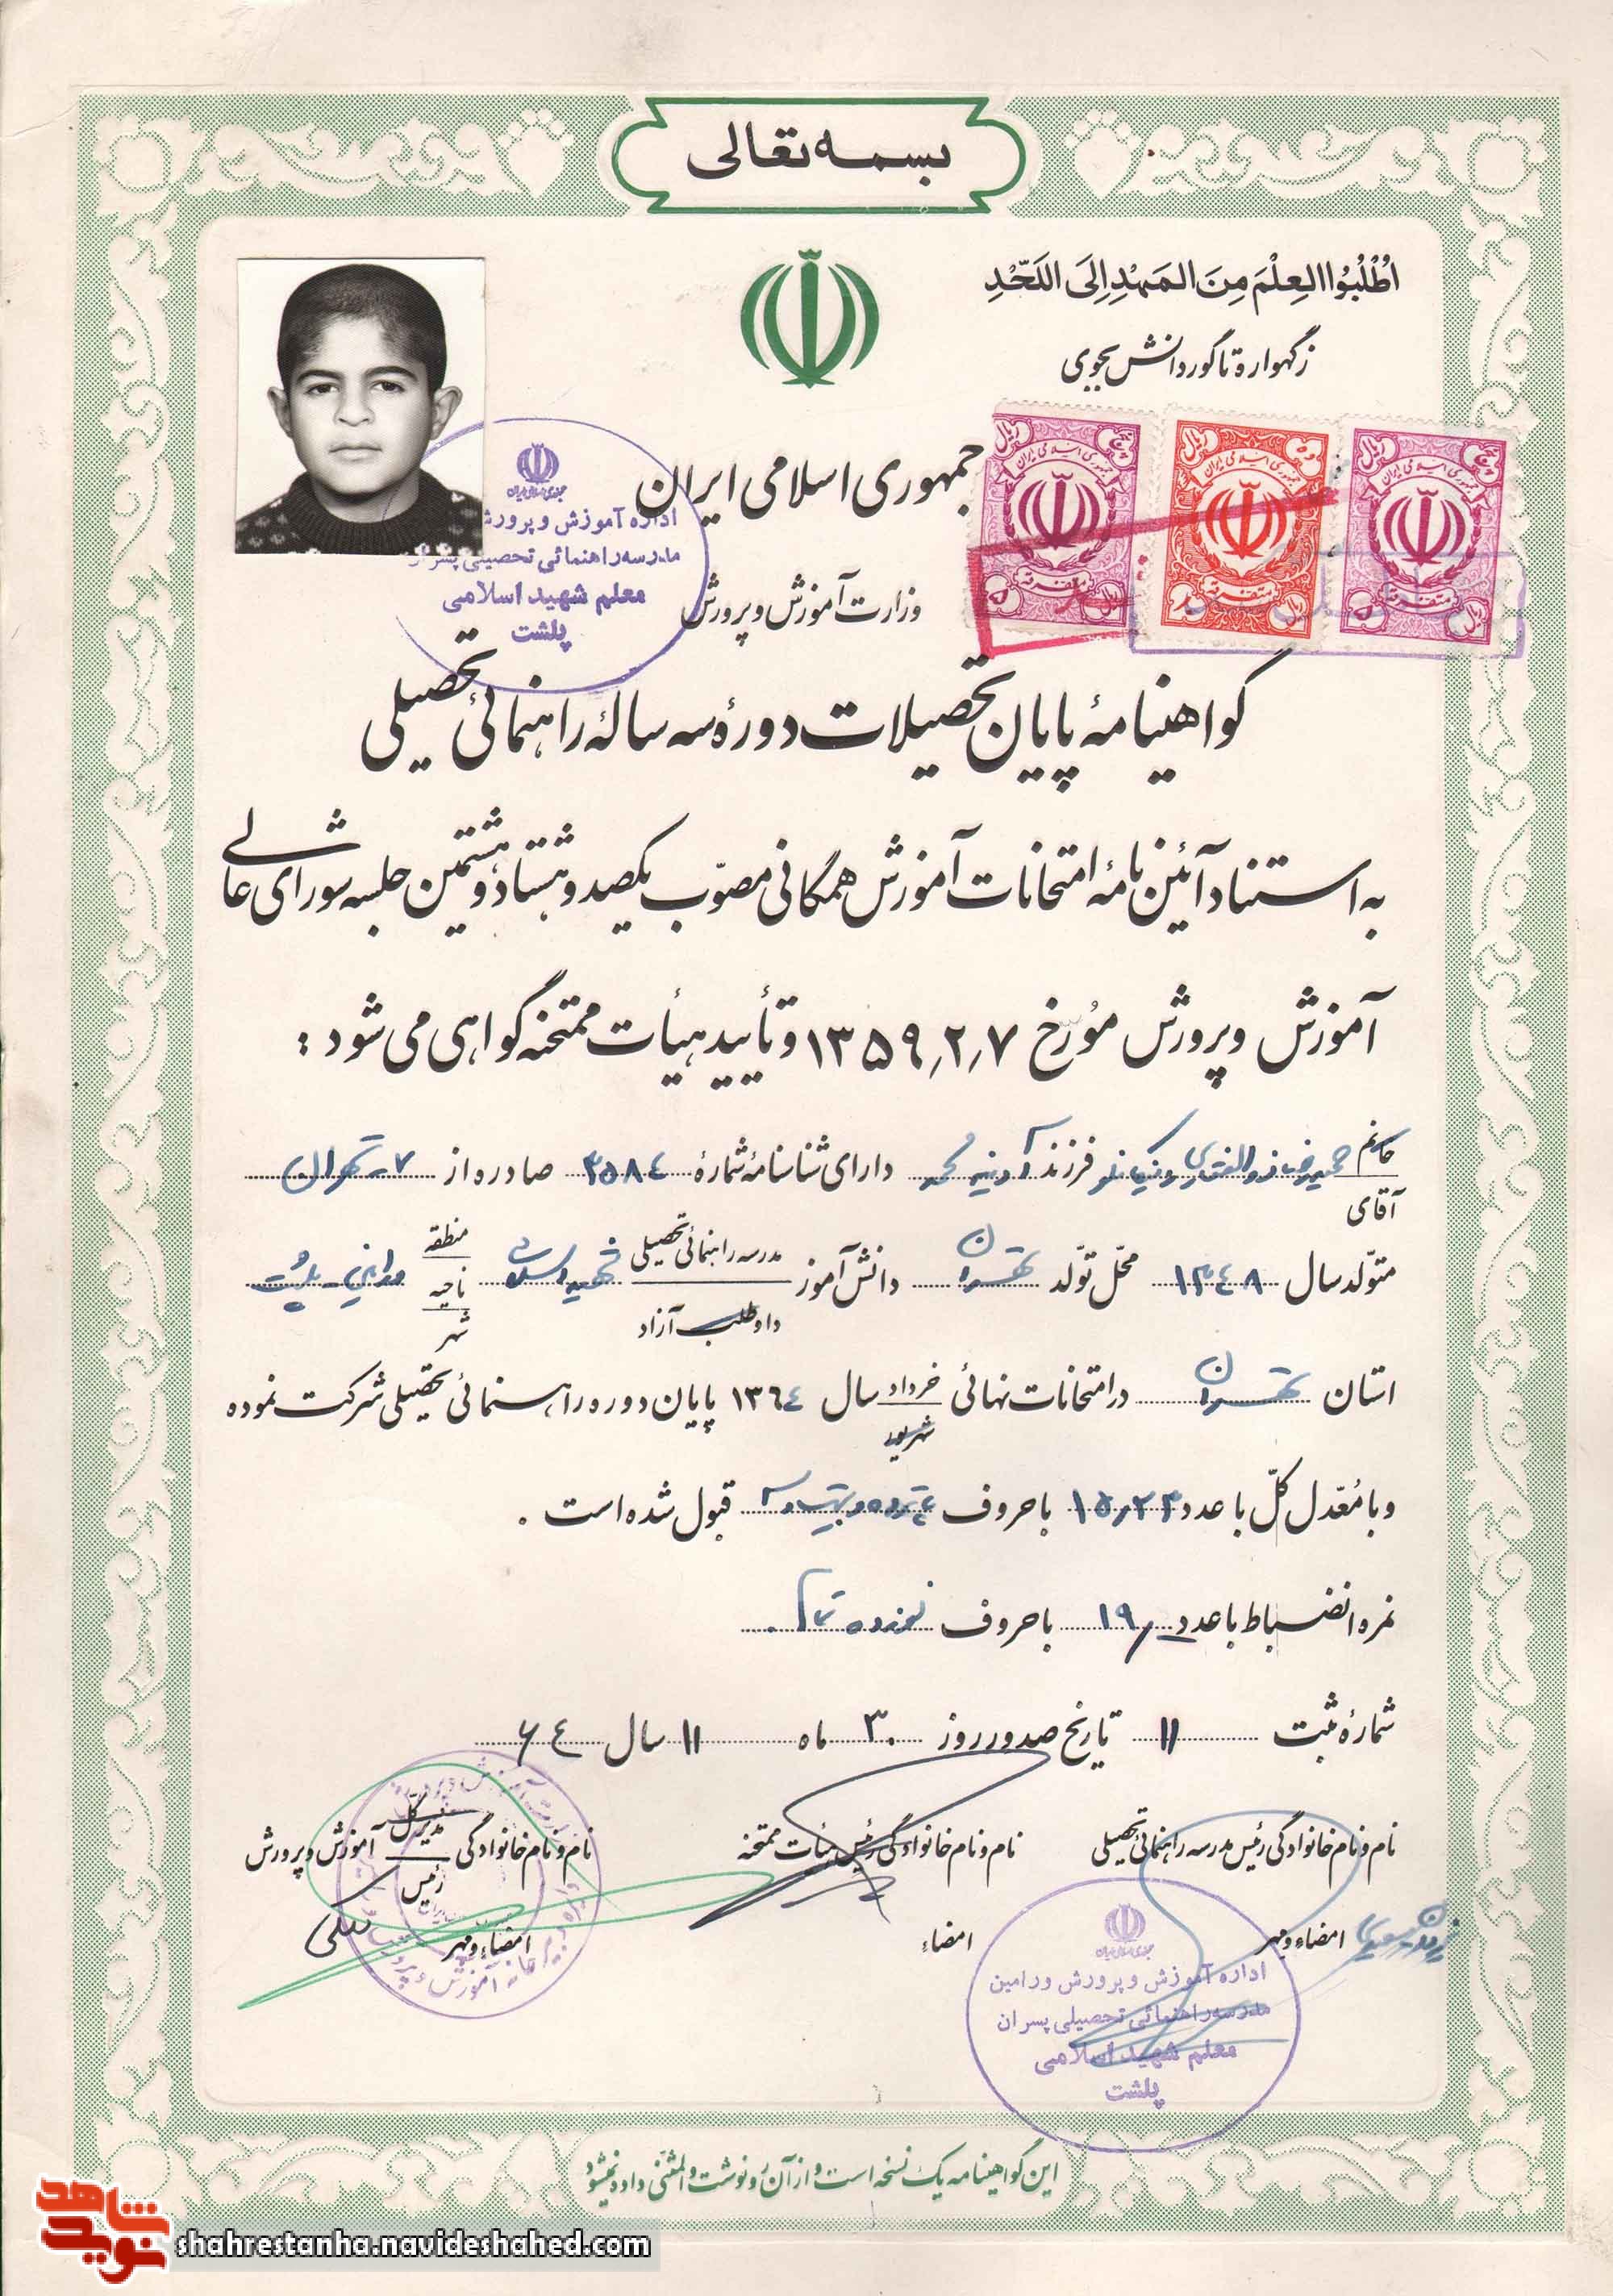 بسمه تعالی
اُطْلُبُوا العِلْمَ مِنَ المَهْدِ اِلَی اللَحّدِ
زگهواره تا گور دانش بجوی
جمهوری اسلامی ایران
وزارت آموزش و پرورش
اداره آموزش و پرورش
مدرسه راهنمائی تحصیلی پسران
معلم شهید اسلامی
پلشت
گواهینامهٔ پایان تحصیلات دورهٔ سه سالهٔ راهنمائی تحصیلی
به استناد آئین نامهٔ امتحانات آموزش همگانی مصوّب یکصد و هشتاد و هشتمین جلسه شورای عالی
آموزش و پرورش مورخ ۱۳۵۹٫۲٫۷ و تأیید هیأت ممتحنه گواهی می شود :
خانم
آقای ذوالفقاری فرزند دارای شناسنامهٔ شمارهٔ ۳۵۸٤ صادره از ۷- تهران
متولّد سال ۱۳٤۸ محلّ تولّد تهران دانش آموز مدرسه راهنمائی تحصیلی شهید اسلامی منطقه
داوطلب آزاد ناحیه
شهر
استان تهران در امتحانات نهائی خرداد سال ۱۳٦٤ پایان دوره راهنمائی تحصیلی شرکت نموده
شهریور
و با مُعّدل کلّ با عدد ۱۵٫۲۳ با حروف پانزده و بیست و سه قبول شده است .
نمره انضباط با عدد ۱۹٫ با حروف نوزده تمام
شمارهٔ ثبت ۱۱ تاریخ صدور روز ۳۰ ماه ۱۱ سال ۶٤
نام و نام خانوادگی رئیس مدرسه راهنمائی تحصیلی
امضاء و مهر
نام و نام خانوادگی رئیس هیأت ممتحنه
امضاء
نام و نام خانوادگی مدیرکل آموزش و پرورش
رئیس
امضاء و مهر
اداره آموزش و پرورش ورامین
مدرسه راهنمائی تحصیلی پسران
معلم شهید اسلامی
پلشت
این گواهینامه یک نسخه است و از آن رونوشت و المثنی داده نمیشود
نوید شاهد
shahrestanha.navideshahed.com